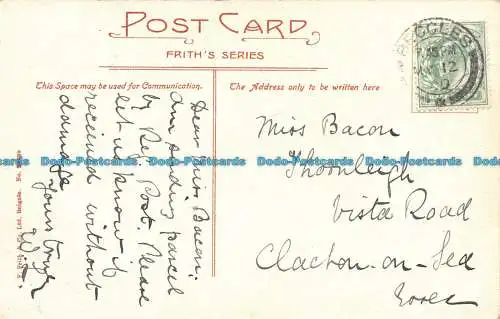 POST CARD
FRITH'S SERIES
This Space may be used for Communication.
The Address only to be written here
Dear Miss Bacon:
Am sending parcel
by Re. Post. Please
let us know if
received without
damage
Yours truly
Miss Bacon
Thornleigh
Vista Road
Clacton-on-Sea
Essex
BECCLES
12
F. Frith & Co., Ltd., Reigate. No.
Dodo-Postcards Dodo-Postcards Dodo-Postcards Dodo-Postcards Dodo-Postcards